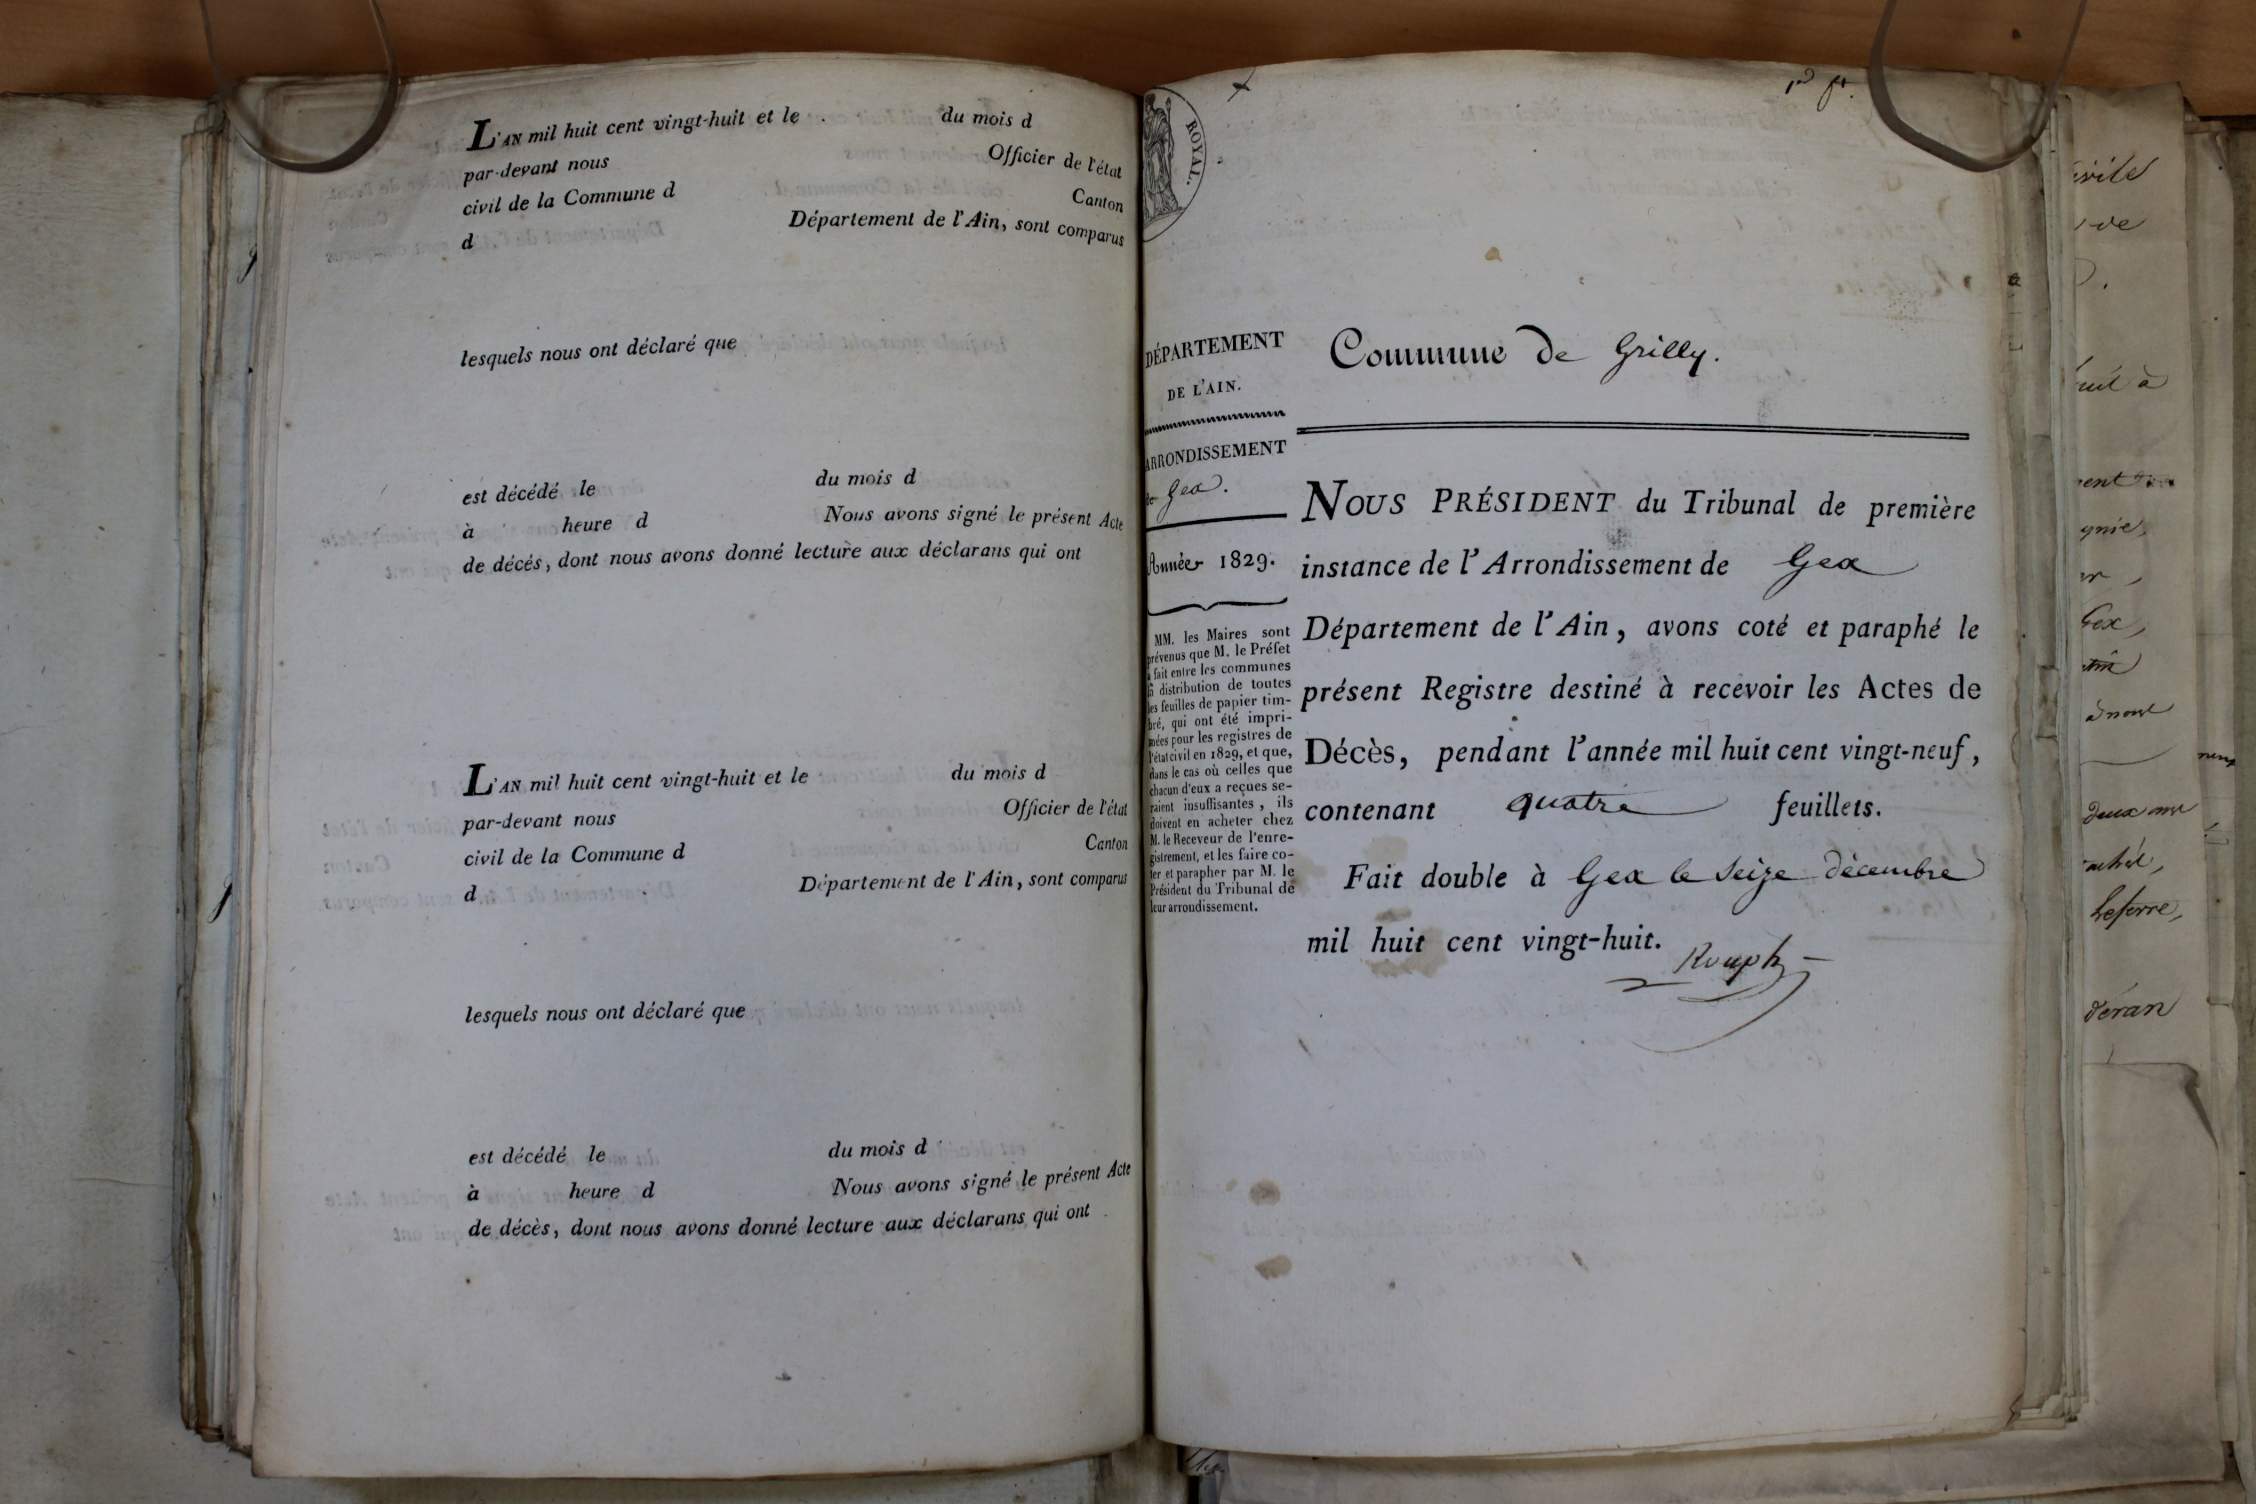 L'AN mil huit cent vingt-huit et le du mois d
par-devant nous Officier de l'état
civil de la Commune d Canton
d Département de l'Ain, sont comparus
lesquels nous ont déclaré que
est décédé le du mois d
à heure d Nous avons signé le présent Acte
de décés, dont nous avons donné lecture aux déclarans qui ont
L'AN mil huit cent vingt-huit et le du mois d
par-devant nous Officier de l'état
civil de la Commune d Canton
d Département de l'Ain, sont comparus
lesquels nous ont déclaré que
est décédé le du mois d
à heure d Nous avons signé le présent Acte
de décès, dont nous avons donné lecture aux déclarans qui ont
ROYAL.
DÉPARTEMENT
DE L'AIN.
ARRONDISSEMENT
de Gex.
Année 1829.
MM. les Maires sont
prévenus que M. le Préfet
a fait entre les communes
la distribution de toutes
les feuilles de papier tim-
bré, qui ont été impri-
mées pour les registres de
l'état civil en 1829, et que,
dans le cas où celles que
chacun d'eux a reçues se-
raient insuffisantes, ils
doivent en acheter chez
M. le Receveur de l'enre-
gistrement, et les faire co-
ter et parapher par M. le
Président du Tribunal de
leur arrondissement.
Commune de Grilly.
NOUS PRÉSIDENT du Tribunal de première
instance de l'Arrondissement de Gex
Département de l'Ain, avons coté et paraphé le
présent Registre destiné à recevoir les Actes de
Décès, pendant l'année mil huit cent vingt-neuf,
contenant quatre feuillets.
Fait double à Gex le Seize décembre
mil huit cent vingt-huit.
Rouph